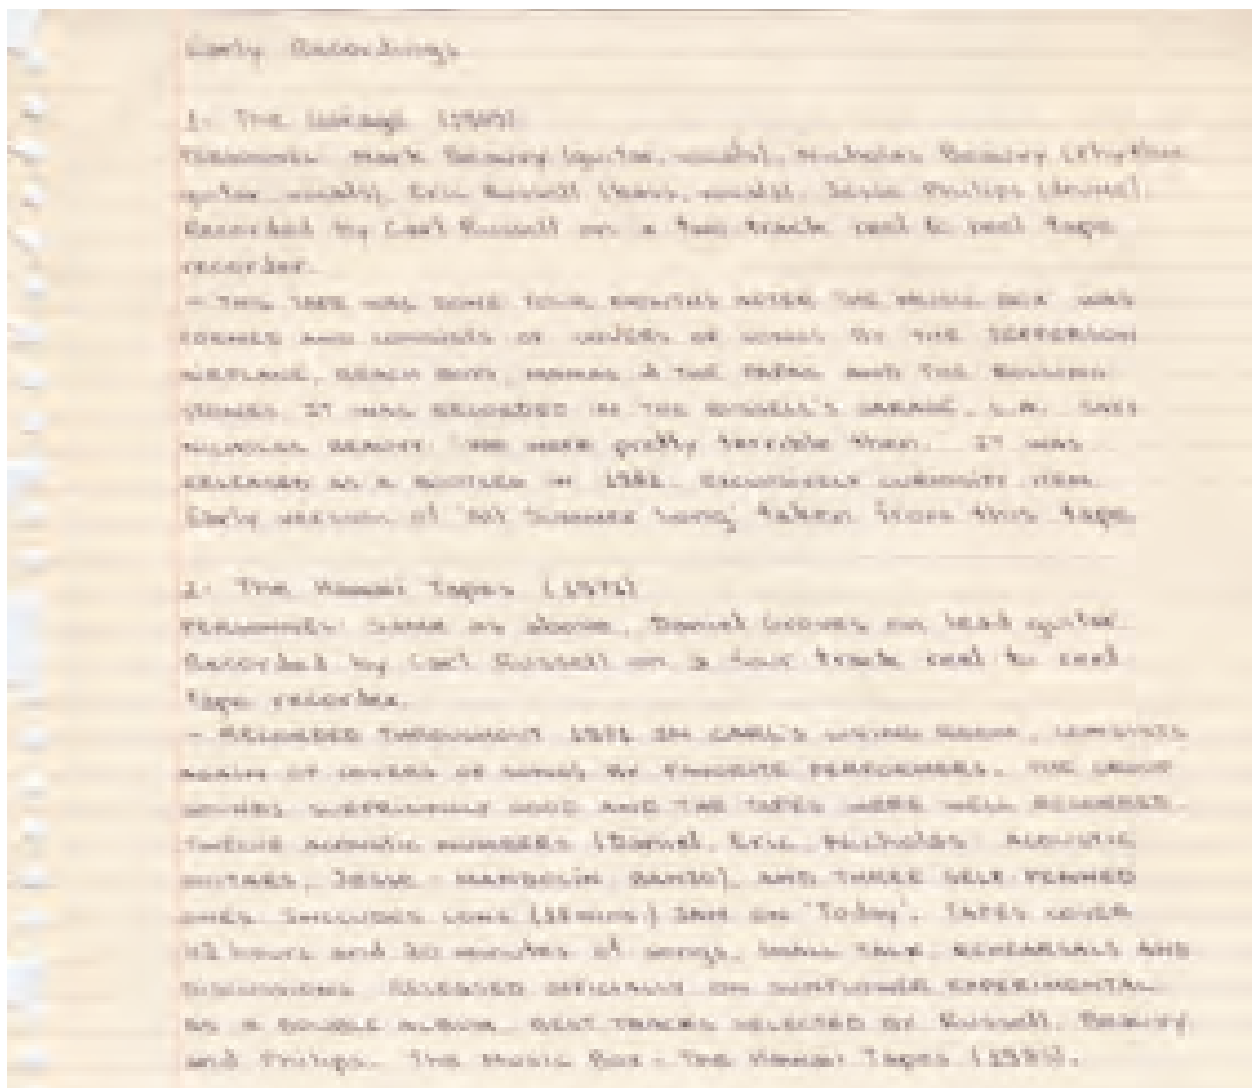 Early Recordings
1- The (1969)
PERSONNEL: Mark Beauvy (guitar, vocals), Nicholas Beauvy (rhythm
guitar, vocals), Eric Russell (bass, vocals), Jesse Philips (drums).
Recorded by Carl Russell on a two track reel to reel tape
recorder.
- THIS TAPE WAS DONE FOUR MONTHS AFTER THE MUSIC BOX WAS
FORMED AND CONSISTS OF COVERS OF SONGS BY THE JEFFERSON
AIRPLANE, BEACH BOYS, MAMAS & THE PAPAS AND THE ROLLING
STONES. IT WAS RECORDED IN THE RUSSELL'S GARAGE, L.A. SAYS
NICHOLAS BEAUVY: "WE WERE pretty terrible then." IT WAS
RELEASED AS A BOOTLEG IN 1982. EXCLUSIVELY CURIOSITY ITEM.
Early version of 'All Summer Long' taken from this tape
2- The Hawaii Tapes (1971)
PERSONNEL: Same as above, Daniel Groves on lead guitar.
Recorded by Carl Russell on a four track reel to reel
tape recorder.
- RECORDED THROUGHOUT 1971 IN CARL'S LIVING ROOM, CONSISTS
AGAIN OF COVERS OF SONGS BY FAVORITE PERFORMERS. THE GROUP
SOUNDS SURPRISINGLY GOOD AND THE TAPES WERE WELL RECORDED.
TWELVE ACOUSTIC NUMBERS (Daniel, Eric, Nicholas - ACOUSTIC
GUITARS, JESSE - MANDOLIN, BANJO), AND THREE SELF PENNED
ONES. INCLUDES LONG (18 mins) JAM ON 'Today'. TAPES COVER
hours and 20 minutes of songs, SMALL TALK, REHEARSALS AND
DISCUSSIONS. RELEASED OFFICIALLY ON SUNFLOWER EXPERIMENTAL
AS A DOUBLE ALBUM. BEST TRACKS SELECTED BY Russell, Beauvy
and Philips. The Music Box - The Hawaii Tapes ().